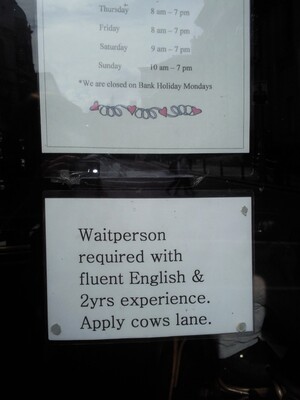 Thursday 8 am – 7 pm
Friday 8 am – 7 pm
Saturday 9 am – 7 pm
Sunday 10 am – 7 pm
*We are closed on Bank Holiday Mondays
Waitperson
required with
fluent English &
2yrs experience.
Apply cows lane.